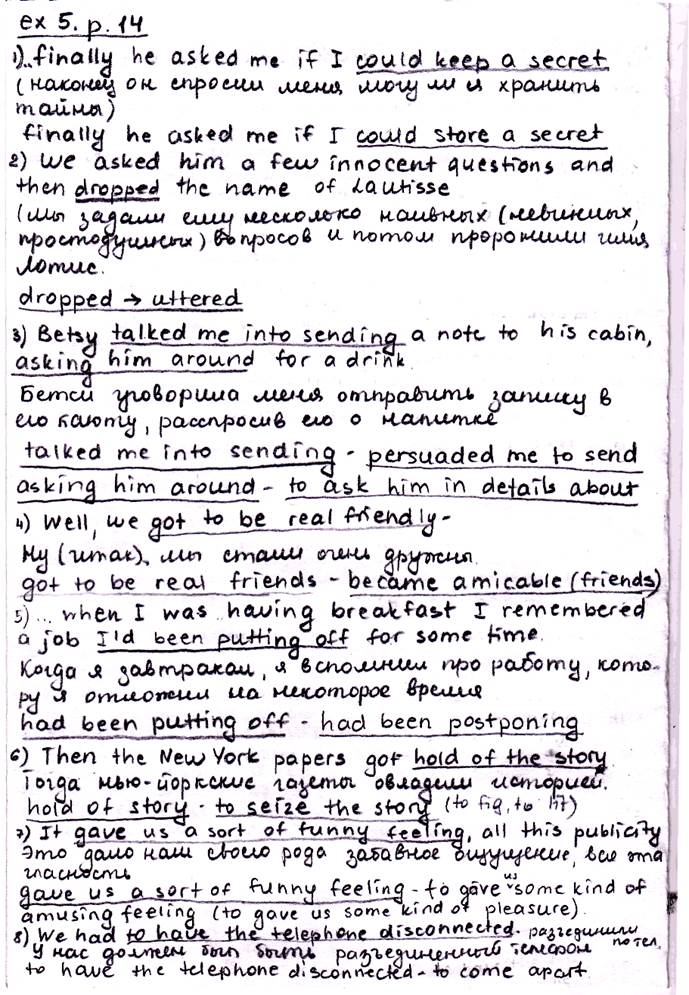 ex 5. p. 14
1)..finally he asked me if I could keep a secret
(наконец он спросил меня могу ли я хранить
тайны)
finally he asked me if I could store a secret
2) We asked him a few innocent questions and
then dropped the name of Lautisse
(мы задали ему несколько наивных (невинных,
простодушных) вопросов и потом проронили имя
Лотис.
dropped → uttered
3) Betsy talked me into sending a note to his cabin,
asking him around for a drink.
Бетси уговорила меня отправить записку в
его каюту, расспросив его о напитке
talked me into sending - persuaded me to send
asking him around - to ask him in details about
4) Well, we got to be real friendly -
Ну (итак), мы стали очень дружны.
got to be real friends - became amicable (friends)
5) ... when I was having breakfast I remembered
a job I'd been putting off for some time.
Когда я завтракал, я вспомнил про работу, кото-
ру я отложил на некоторое время
had been putting off - had been postponing
6) Then the New York papers got hold of the story
Тогда нью-йоркские газеты овладели историей.
hold of story - to seize the story (to fig, to lit)
7) It gave us a sort of funny feeling, all this publicity
Это дало нам своего рода забавное ощущение, вся эта
гласность
gave us a sort of funny feeling - to gave us some kind of
amusing feeling (to gave us some kind of pleasure).
8) We had to have the telephone disconnected. разъединили
У нас должен был быть разъединенный телефон по тел.
to have the telephone disconnected - to come apart